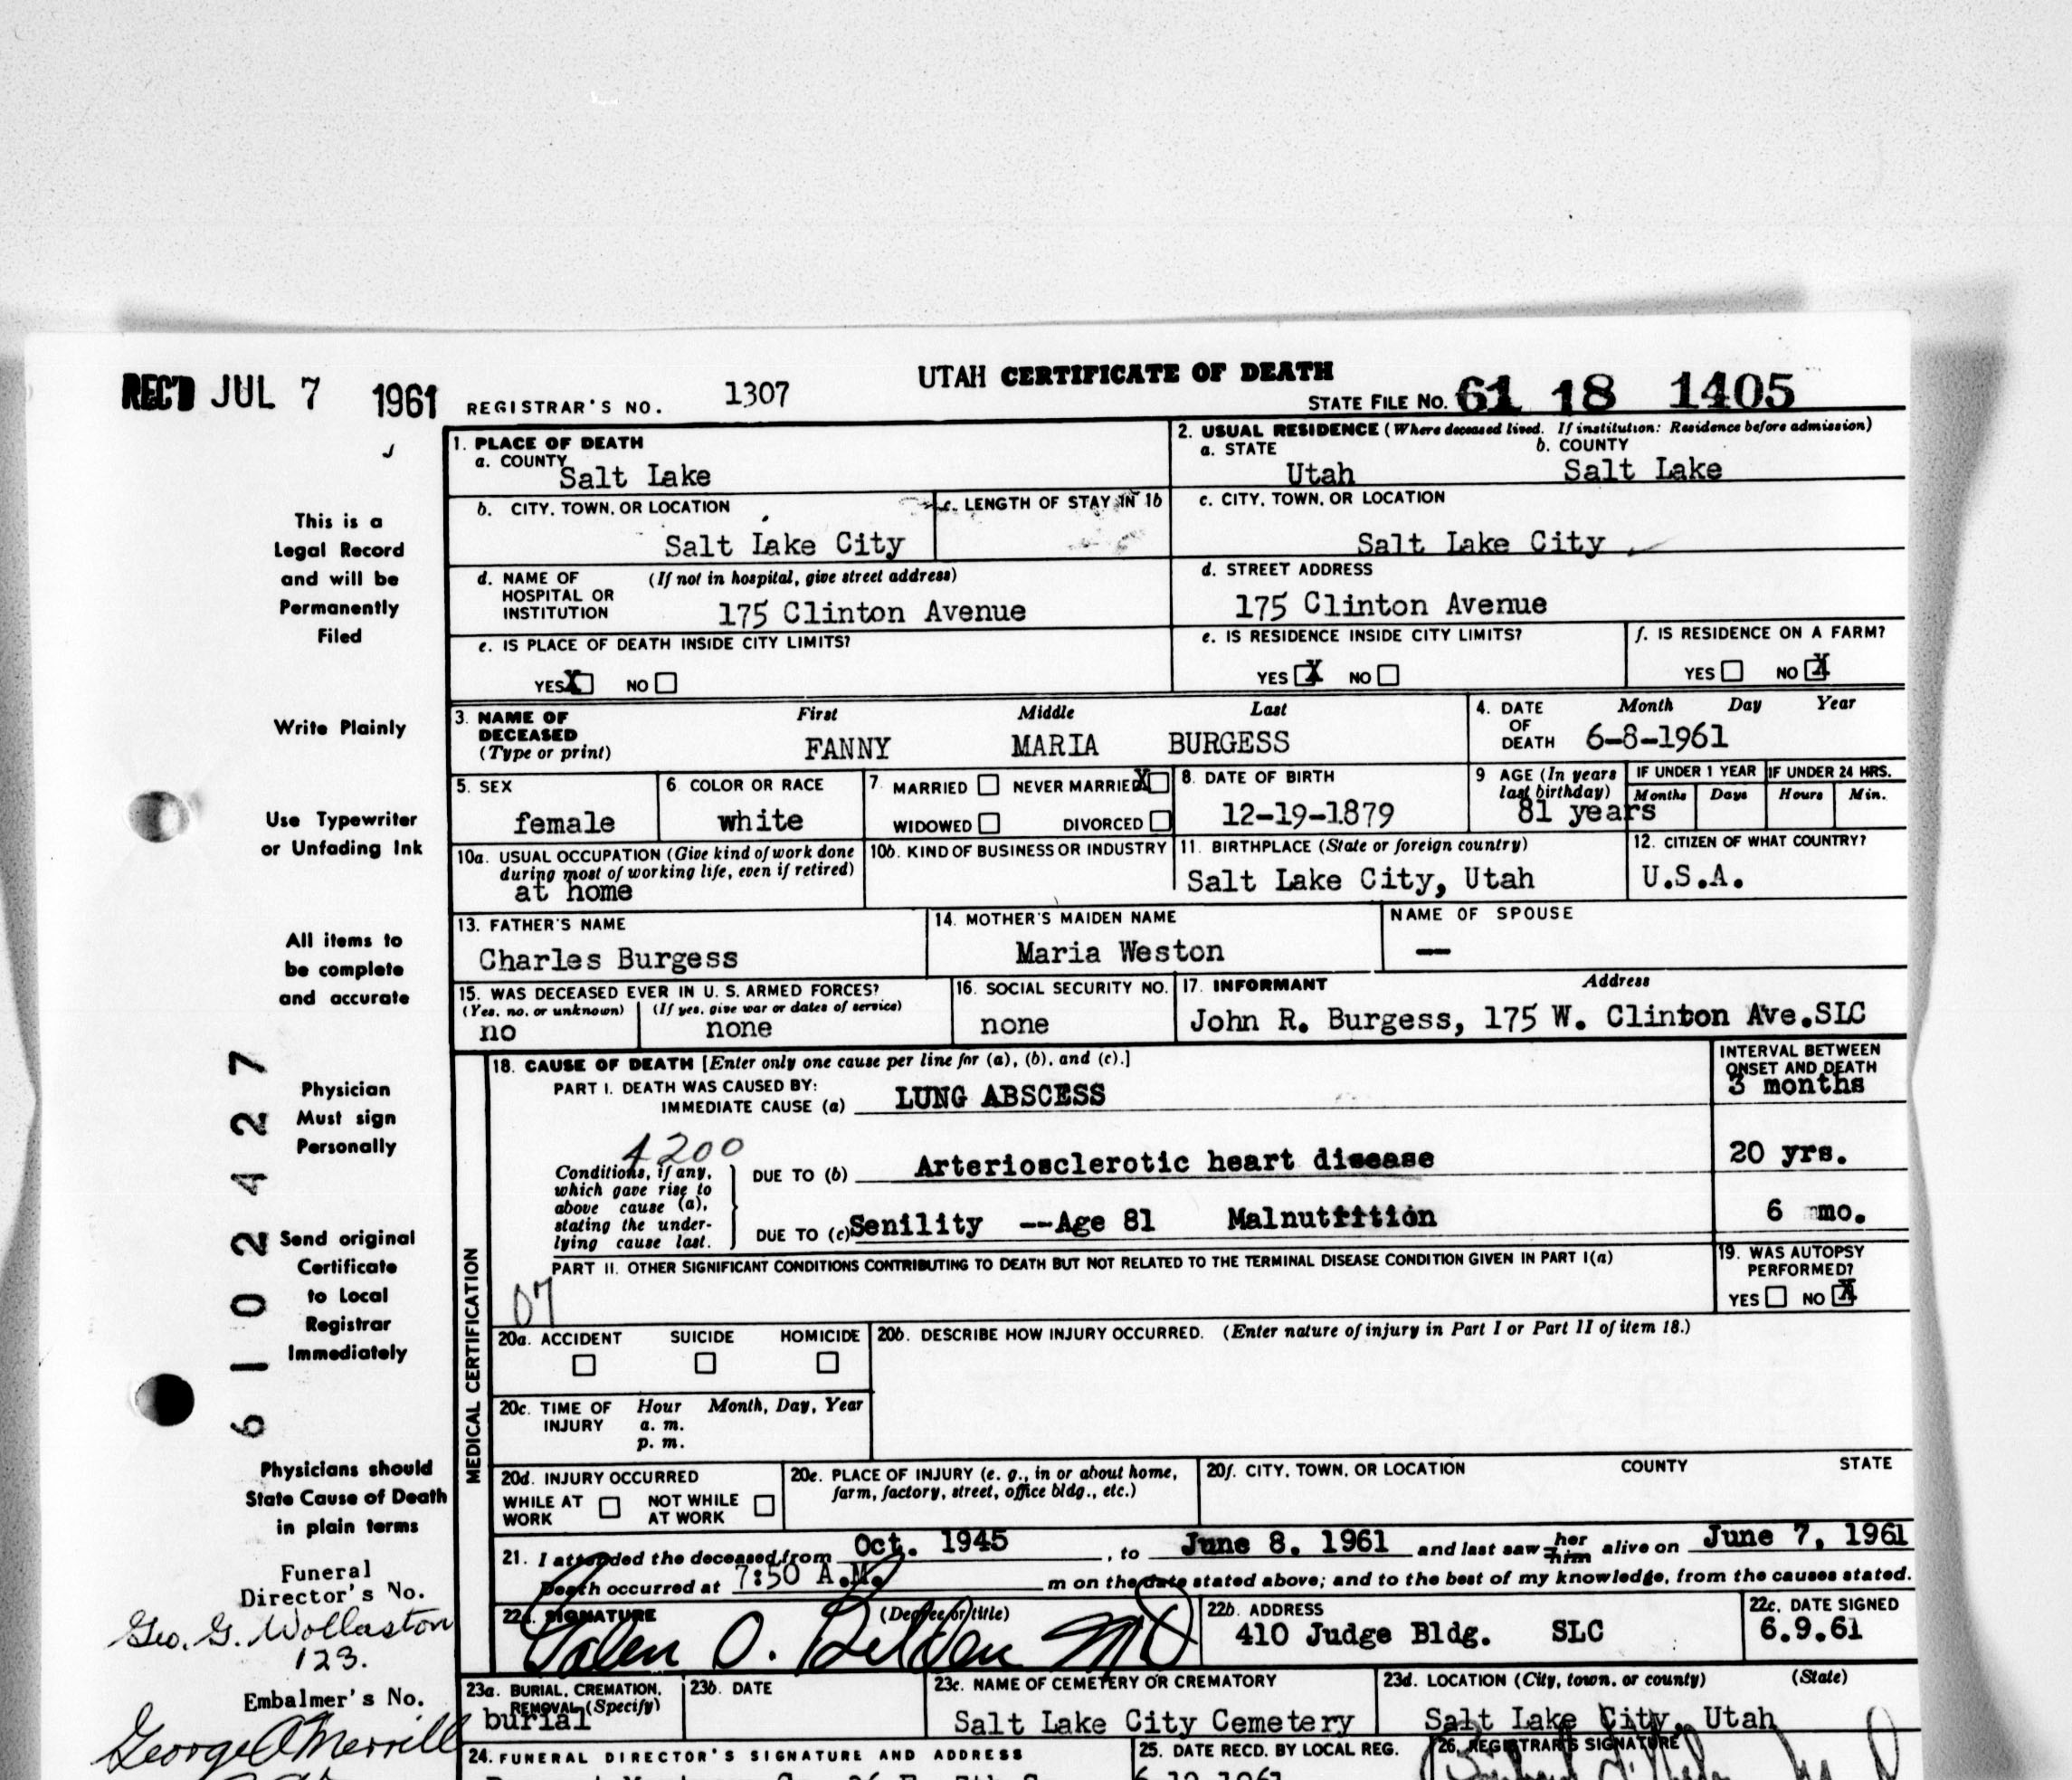 REC'D JUL 7 1961
REGISTRAR'S NO. 1307
UTAH CERTIFICATE OF DEATH
STATE FILE NO. 61 18 1405
This is a
Legal Record
and will be
Permanently
Filed
Write Plainly
Use Typewriter
or Unfading Ink
All items to
be complete
and accurate
Physician
Must sign
Personally
Send original
Certificate
to Local
Registrar
Immediately
Physicians should
State Cause of Death
in plain terms
Funeral
Director's No.
Geo. G. Wollaston
123.
Embalmer's No.
George O Merrill
61 02427
1. PLACE OF DEATH
a. COUNTY
Salt Lake
2. USUAL RESIDENCE (Where deceased lived. If institution: Residence before admission)
a. STATE b. COUNTY
Utah Salt Lake
b. CITY, TOWN, OR LOCATION
Salt Lake City
c. LENGTH OF STAY IN 1b
c. CITY, TOWN, OR LOCATION
Salt Lake City
d. NAME OF HOSPITAL OR INSTITUTION (If not in hospital, give street address)
175 Clinton Avenue
d. STREET ADDRESS
175 Clinton Avenue
e. IS PLACE OF DEATH INSIDE CITY LIMITS?
YES X NO
e. IS RESIDENCE INSIDE CITY LIMITS?
YES X NO
f. IS RESIDENCE ON A FARM?
YES NO X
3. NAME OF DECEASED (Type or print)
First Middle Last
FANNY MARIA BURGESS
4. DATE OF DEATH Month Day Year
6-8-1961
5. SEX
female
6. COLOR OR RACE
white
7. MARRIED NEVER MARRIED X
WIDOWED DIVORCED
8. DATE OF BIRTH
12-19-1879
9 AGE (In years last birthday)
81 years
IF UNDER 1 YEAR IF UNDER 24 HRS.
Months Days Hours Min.
10a. USUAL OCCUPATION (Give kind of work done during most of working life, even if retired)
at home
10b. KIND OF BUSINESS OR INDUSTRY
11. BIRTHPLACE (State or foreign country)
Salt Lake City, Utah
12. CITIZEN OF WHAT COUNTRY?
U.S.A.
13. FATHER'S NAME
Charles Burgess
14. MOTHER'S MAIDEN NAME
Maria Weston
NAME OF SPOUSE
—
15. WAS DECEASED EVER IN U. S. ARMED FORCES?
(Yes, no, or unknown) (If yes, give war or dates of service)
no none
16. SOCIAL SECURITY NO.
none
17. INFORMANT Address
John R. Burgess, 175 W. Clinton Ave.SLC
MEDICAL CERTIFICATION
18. CAUSE OF DEATH [Enter only one cause per line for (a), (b), and (c).]
INTERVAL BETWEEN ONSET AND DEATH
PART I. DEATH WAS CAUSED BY:
IMMEDIATE CAUSE (a) LUNG ABSCESS
3 months
4200
Conditions, if any, which gave rise to above cause (a), stating the underlying cause last.
DUE TO (b) Arteriosclerotic heart disease
20 yrs.
DUE TO (c) Senility --Age 81 Malnutrition
6 mo.
PART II. OTHER SIGNIFICANT CONDITIONS CONTRIBUTING TO DEATH BUT NOT RELATED TO THE TERMINAL DISEASE CONDITION GIVEN IN PART I(a)
07
19. WAS AUTOPSY PERFORMED?
YES NO X
20a. ACCIDENT SUICIDE HOMICIDE
20b. DESCRIBE HOW INJURY OCCURRED. (Enter nature of injury in Part I or Part II of item 18.)
20c. TIME OF INJURY Hour Month, Day, Year
a. m.
p. m.
20d. INJURY OCCURRED
WHILE AT WORK NOT WHILE AT WORK
20e. PLACE OF INJURY (e. g., in or about home, farm, factory, street, office bldg., etc.)
20f. CITY, TOWN, OR LOCATION COUNTY STATE
21. I attended the deceased from Oct. 1945, to June 8. 1961 and last saw her him alive on June 7, 1961
Death occurred at 7:50 A.M. m on the date stated above; and to the best of my knowledge, from the causes stated.
22a. SIGNATURE (Degree or title)
Galen O. Belden MD
22b. ADDRESS
410 Judge Bldg. SLC
22c. DATE SIGNED
6.9.61
23a. BURIAL, CREMATION, REMOVAL (Specify)
burial
23b. DATE
23c. NAME OF CEMETERY OR CREMATORY
Salt Lake City Cemetery
23d. LOCATION (City, town, or county) (State)
Salt Lake City, Utah
24. FUNERAL DIRECTOR'S SIGNATURE AND ADDRESS
25. DATE RECD. BY LOCAL REG.
26. REGISTRAR'S SIGNATURE